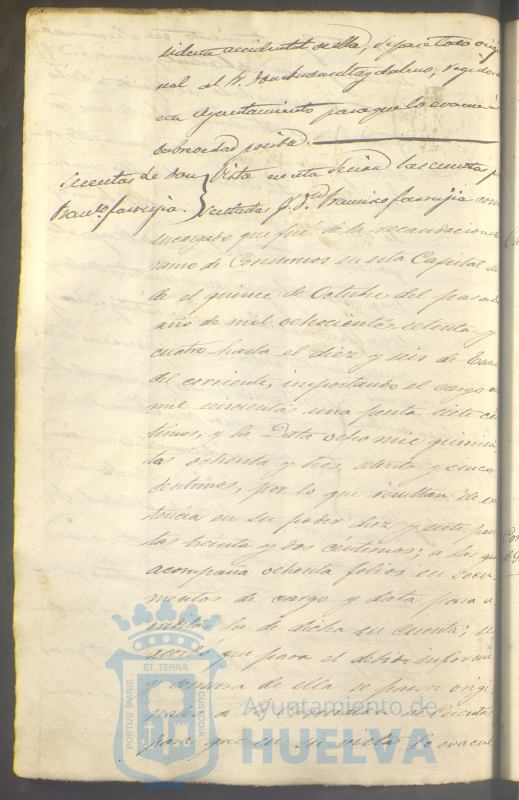 sidente accidental de ella, de pase todo origi
nal al Sr. Don
este Ayuntamiento para que lo evacue á
la brevedad posible.
Cuentas de Don
Franco. Farrujia.
Vista en esta sesion las cuentas pre
sentadas p. Dn. Francisco Farrujia como
encargado que fué de la recaudacion del
ramo de Consumos en esta Capital des
de el quince de Octubre del pasado
año de mil ochocientos setenta y
cuatro hasta el diez y seis de Enero
del corriente, importando el cargo
mil seiscientas una peseta siete cen
timos, y la Data ocho mil quinien
tas ochenta y tres, setenta y cinco
centimos, por lo que resultan de ex
tencia en su poder diez y siete pese
tas treinta y dos céntimos; a las que
acompaña ochenta folios en docu
mentos de cargo y data para a
creditar los de dicha su cuenta; se
acordó que para el debido informe
y censura de ella se pasen origi
nales a la Comision de Cuentas
para que en su vista lo evacue
PORTUS MARIS
ET TERRÆ
CUSTODIA
Ayuntamiento de
HUELVA